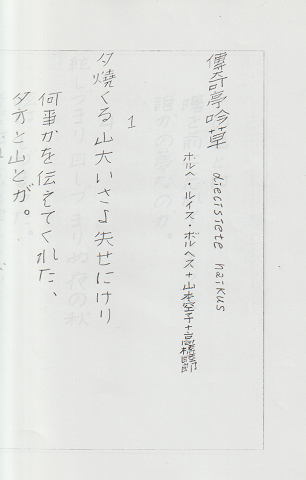 傳奇亭吟草 diecisiete haikus
ホルヘ・ルイス・ボルヘス+山本空子+高橋睦郎
1
夕焼くる山大いさよ失せにけり
何事かを伝えてくれた、
夕方と山とが。